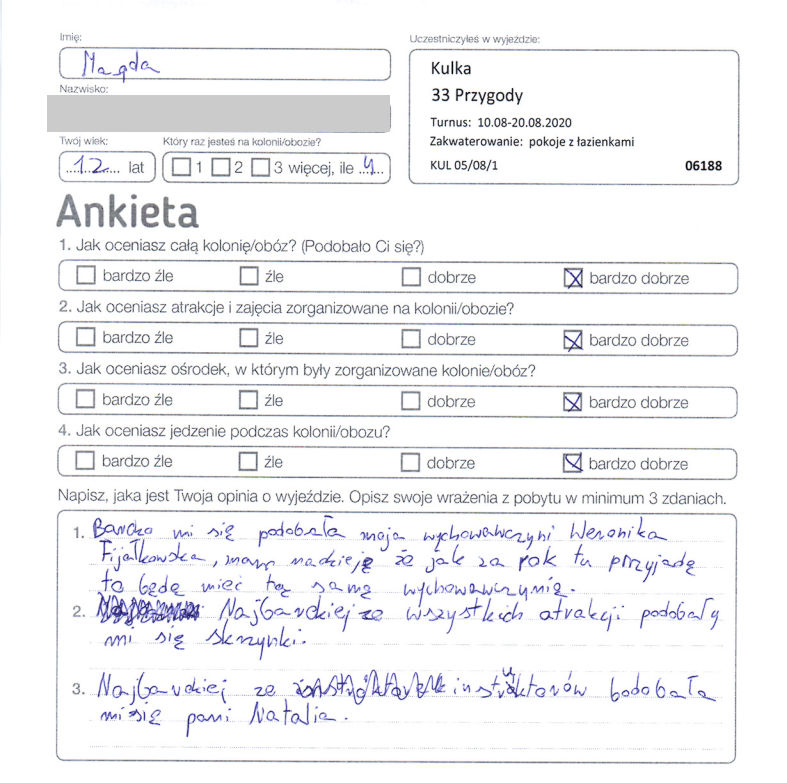 Imię:
Magda
Nazwisko:
Uczestniczyłeś w wyjeździe:
Kulka
33 Przygody
Turnus: 10.08-20.08.2020
Zakwaterowanie: pokoje z łazienkami
KUL 05/08/1 06188
Twój wiek:
12 lat
Który raz jesteś na kolonii/obozie?
1 2 3 więcej, ile 4
Ankieta
1. Jak oceniasz całą kolonię/obóz? (Podobało Ci się?)
bardzo źle źle dobrze bardzo dobrze
2. Jak oceniasz atrakcje i zajęcia zorganizowane na kolonii/obozie?
bardzo źle źle dobrze bardzo dobrze
3. Jak oceniasz ośrodek, w którym były zorganizowane kolonie/obóz?
bardzo źle źle dobrze bardzo dobrze
4. Jak oceniasz jedzenie podczas kolonii/obozu?
bardzo źle źle dobrze bardzo dobrze
Napisz, jaka jest Twoja opinia o wyjeździe. Opisz swoje wrażenia z pobytu w minimum 3 zdaniach.
1. Bardzo mi się podobała moja wychowawczyni Weronika
Fijałkowska, mam nadzieję że jak za rok tu przyjadę
to będę mieć tę samą wychowawczynię.
2. Najbardziej ze wszystkich atrakcji podobały
mi się skrzynki.
3. Najbardziej ze instruktorów bodobała
mi się pani Natalia.